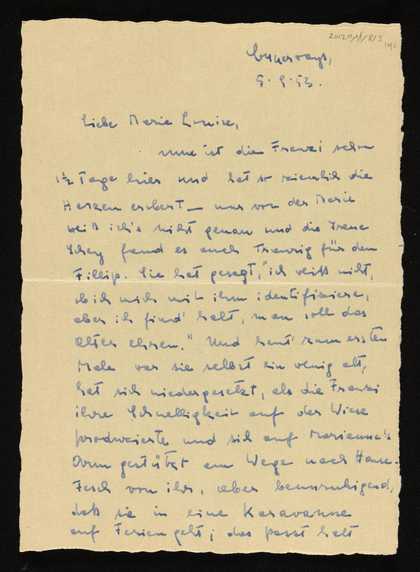 9.9.53.
Liebe Marie Louise,
nun ist die Franzi schon
1½ Tage hier und hat so ziemlich die
Herzen erobert – nur von der Marie
weiß ich's nicht genau und die Irene
fand es auch traurig für den
Fillip. Sie hat gesagt, "ich weiß nicht,
ob ich mich mit ihm identifiziere,
aber ich find' halt, man soll das
Alter ehren." Und heut' zum ersten
Male war sie selbst ein wenig alt,
hat sich niedergesetzt, als die Franzi
ihre Schnelligkeit auf der Wiese
produzierte und sich auf Marianne's
Arm gestützt am Wege nach Hause.
Fesch von ihr, aber beunruhigend,
daß sie in eine Karavanne
auf Ferien geht; das passt halt